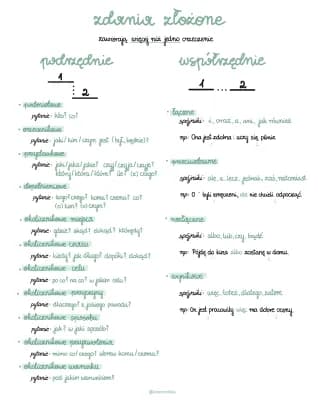 zdania złożone
zawierają więcej niż jedno orzeczenie
podrzędnie
1
2
• podmiotowe
pytanie: kto? co?
• orzecznikowe
pytanie: jaki/kim/czym jest (był, będzie)?
• przydawkowe
pytanie: jaki/jaka/jakie? czyj/czyja/czyje?
który/która/które? ile? (z) czego?
• dopełnieniowe
pytanie: kogo? czego? komu? czemu? co?
(z) kim? (o) czym?
• okolicznikowe miejsca
pytanie: gdzie? skąd? dokąd? którędy?
• okolicznikowe czasu
pytanie: kiedy? jak długo? dopóki? dokąd?
• okolicznikowe celu
pytanie: po co? na co? w jakim celu?
• okolicznikowe przyczyny
pytanie: dlaczego? z jakiego powodu?
• okolicznikowe sposobu
pytanie: jak? w jaki sposób?
• okolicznikowe przyzwolenia
pytanie: mimo co/czego? wbrew komu/czemu?
• okolicznikowe warunku
pytanie: pod jakim warunkiem?
współrzędnie
1 ... 2
• łączne
spójniki: i, oraz, a, ani, jak również
np: Ona jest zdolna i uczy się pilnie.
• przeciwstawne
spójniki: ale, a, lecz, jednak, zaś, natomiast
np: byli zmęczeni, ale nie chcieli odpocząć.
• rozłączne
spójniki: albo, lub, czy, bądź
np: Pójdę do kina albo zostanę w domu.
• wynikowe
spójniki: więc, toteż, dlatego, zatem
np: On jest pracowity, więc ma dobre oceny.